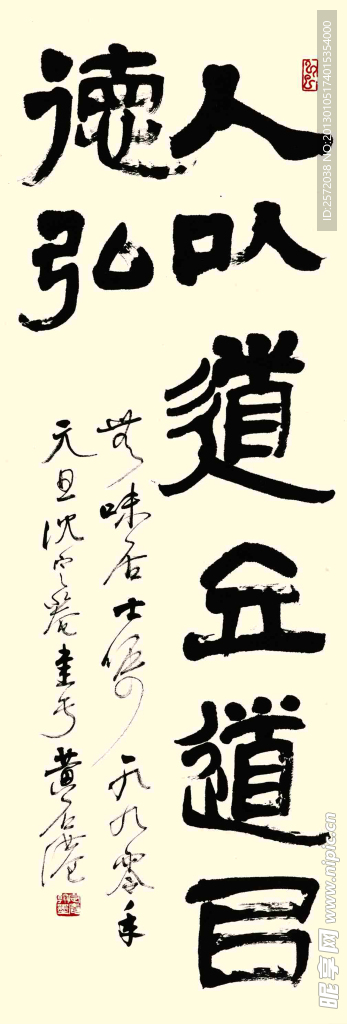 人以道立道以德弘
無味居士偈 一九九零年
元旦沈定菴書于黄石港
ID:2572038 NO:20130105174015354000
昵享网 www.nipic.cn